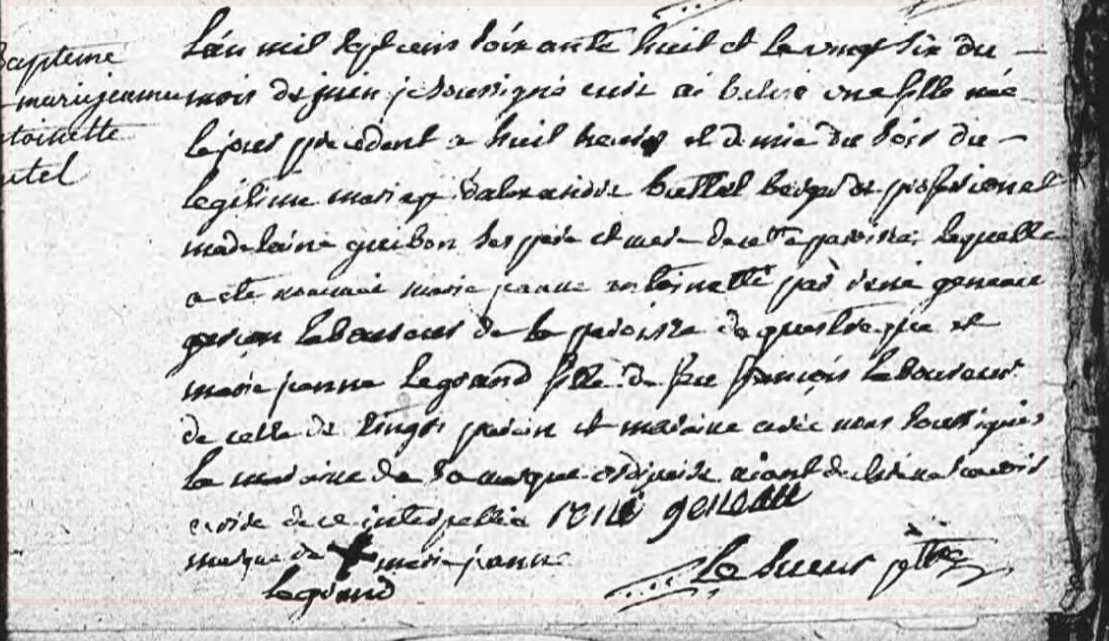 Baptême
marie jeanne
toinette
utel
L'an mil sept cens soixante huit et le vingt six du
mois de juin je soussigné curé ai batisé une fille née
le jour précedent a huit heures et demie du soir du
legitime mariage d'alexandre buttel berger de profession et
madelaine guibon ses père et mere de cette paroisse, laquelle
a été nommée marie jeanne antoinette par rené geneau
garçon laboureur de la paroisse de questrecque et
marie jeanne Legrand fille de feu françois laboureur
de celle de tingri parein et maraine avec nous soussignés
la maraine de sa marque ordinaire aiant declaré ne savoir
écrire de ce interpellée rené geneau
marque de marie jeanne
Legrand
Lesueur ptre